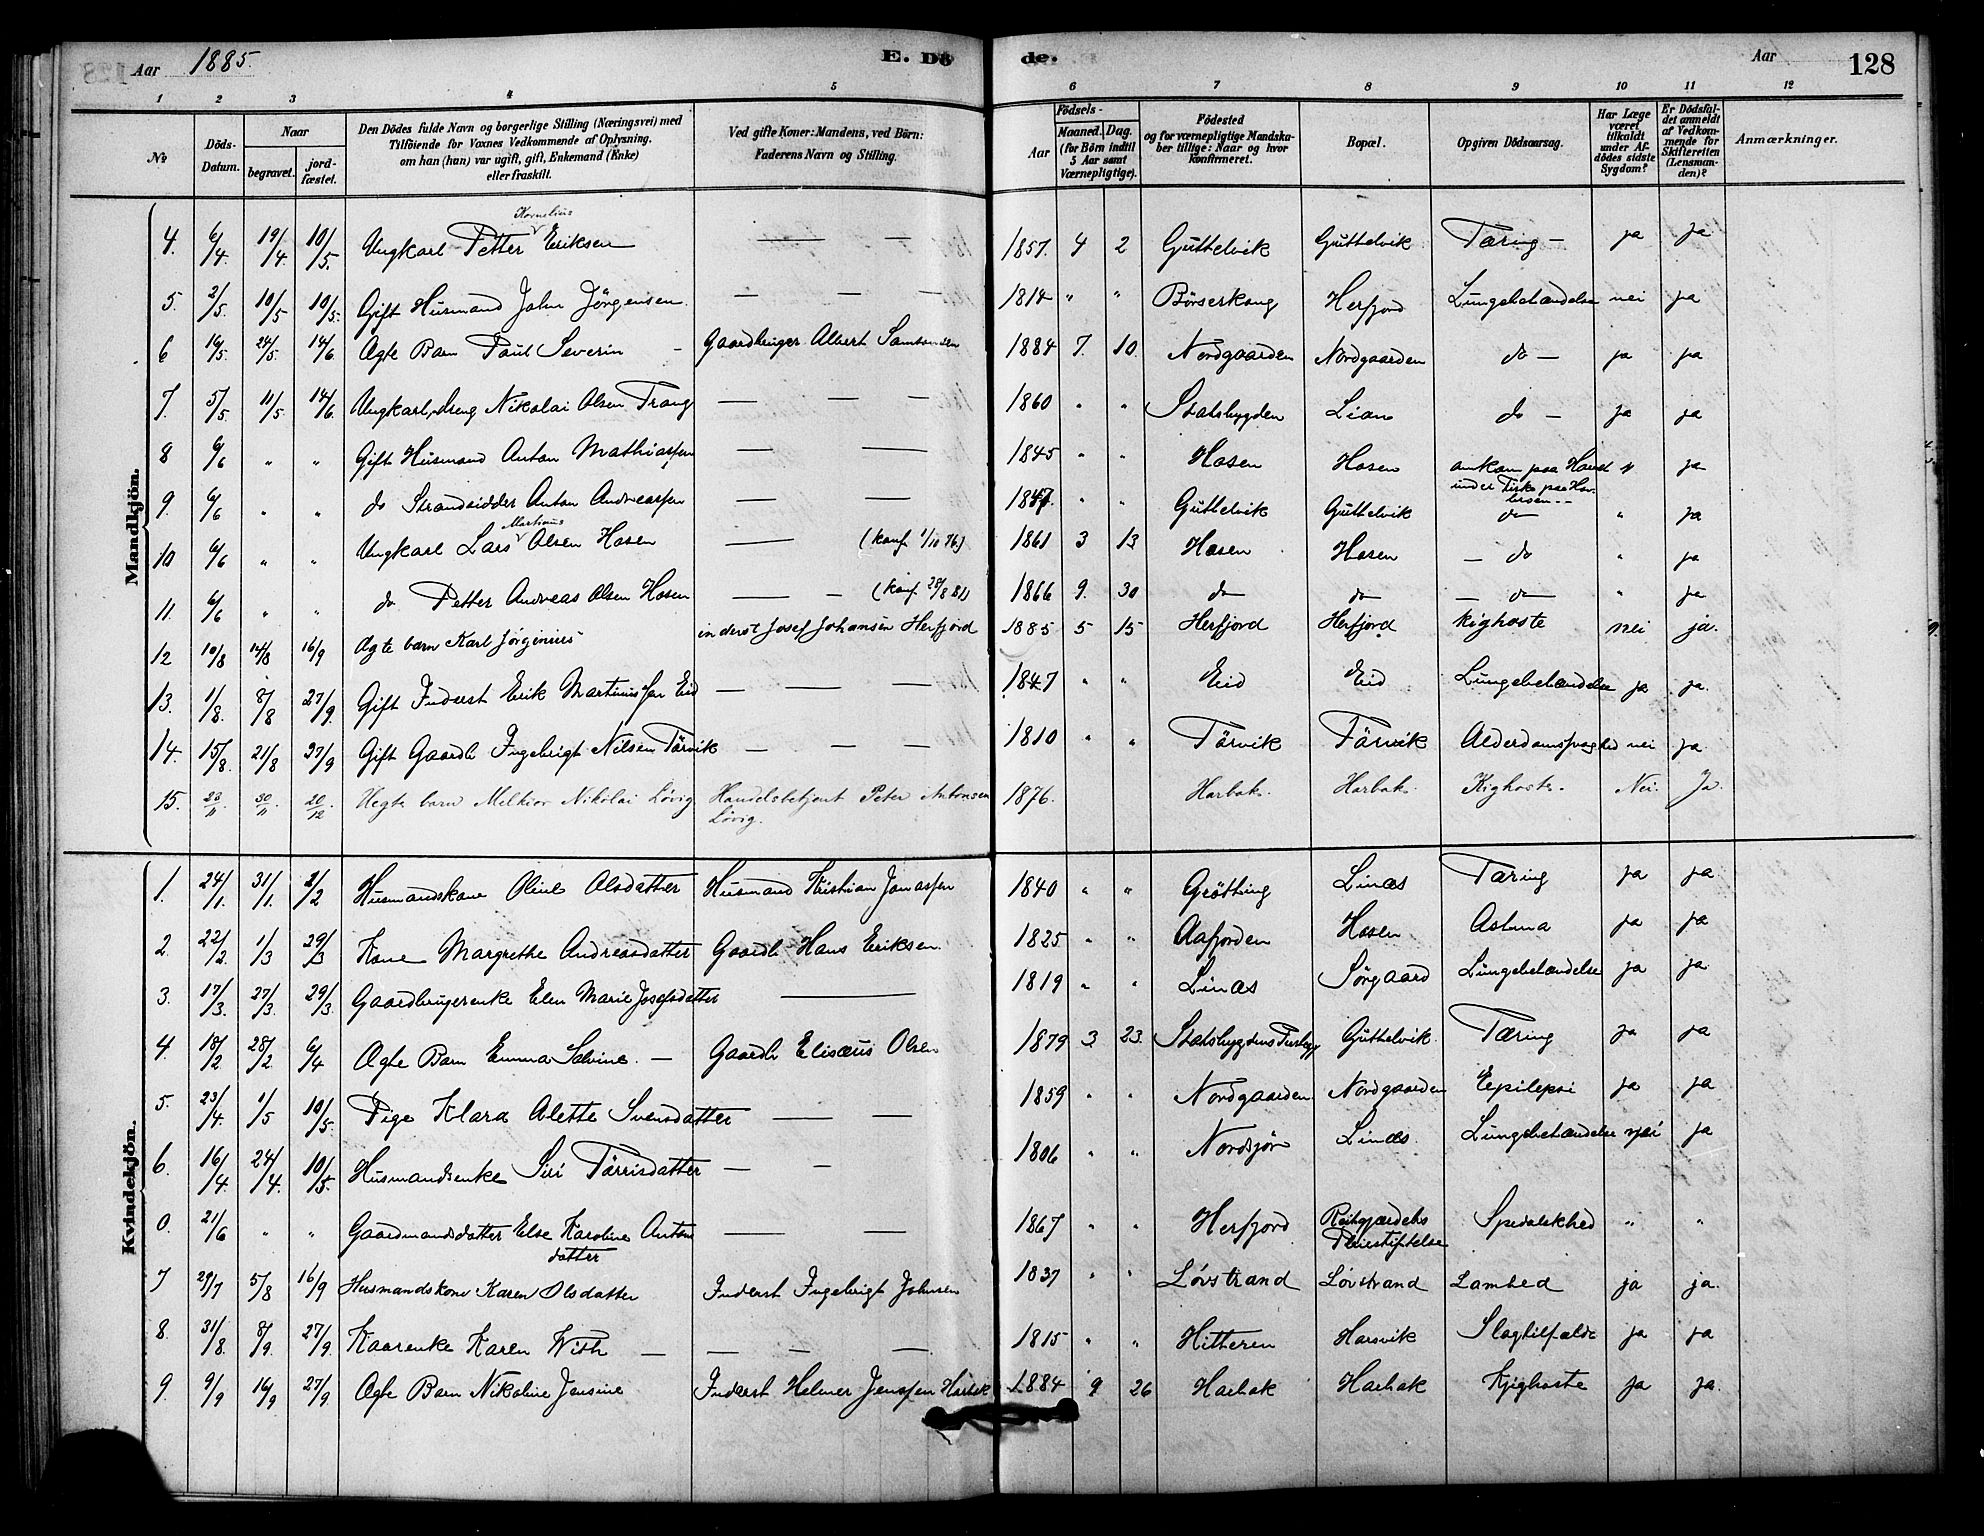 Aar 1885. E. Dö de. Aar 128
1 2 3 4 5 6 7 8 9 10 11 12
No Döds-Datum. Naar begravet. jord-fæstet. Den Dödes fulde Navn og borgerlige Stilling (Næringsvei) med Tilföiende for Voxnes Vedkommende af Oplysning, om han (hun) var ugift, gift, Enkemand (Enke) eller fraskilt. Ved gifte Koner: Mandens, ved Börn: Faderens Navn og Stilling. Födsels- Aar Maaned. Dag. (for Börn indtil 5 Aar samt Værnepligtige). Födested og for værnepligtige Mandska-ber tillige: Naar og hvor konfirmeret. Bopæl. Opgiven Dödsaarsag. Har Læge været tilkaldt under Af-dödes sidste Sygdom? Er Dödsfal-det anmeldt af Vedkom-mende for Skifteretten (Lensman-den)? Anmærkninger.
Mandkjön.
Kornelius
4. 6/4. 19/4. 10/5. Ungkarl Petter Eriksen — — 1857. 4 2 Guttelvik Guttelvik Tæring — ja ja
5 2/5. 10/5 10/5. Gift Husmand John Jörgensen — — — 1814 " " Börserkong Herfjord Lungebetændelse nei ja
6 16/5. 24/5. 14/6 Ægte Barn Paul Severin — Gaardbruger Albert Samtonsen 1884 7. 10. Nordgaarden Nordgaarden do — ja ja
7. 5/5 11/5 14/6. Ungkarl, dreng Nikolai Olsen Trang — — — 1860 " " Statsbygden Lian do — ja ja
8 6/6 " " Gift Husmand Anton Mathiassen — — 1845 " " Hosen Hosen omkom paa Havet " ja
under Fisk paa Hav-
9. 6/6 " " do Strandsidder Anton Andreassen — — 1847. " " Guttelvik Guttelvik do " ja
Martinus
10 6/6 " " Ungkarl Lars Olsen Hosen — (konf. 1/10 76.) 1861 3 13 Hosen Hosen — do " ja
11. 6/6 " " do Petter Andreas Olsen Hosen — — (konf. 28/8 81) 1866 9. 30 do do — do — " ja
12 10/8 14/8 16/9 Ægte barn Karl Jørginius inderst Josef Johansen Herfjord 1885 5 15 Herfjord Herfjord kighoste nei ja.
13. 1/8. 8/8 27/9. Gift Inderst Erik Martinussen Eid — — — 1847 " " Eid Eid Lungebetændelse ja ja.
14. 15/8. 21/8 27/9 Gift Gaardb Ingebrigt Nilsen Törvik — — — 1810 " " Törvik Törvik Alderdomssvaghed nei ja
15. 23/11. 30/11 20/12. Uegte barn Melkior Nikolai Lövig Handelsbetjent Peter Antonsen 1876. Harbak. Harbak. Kighoste. Nei. Ja.
Lövig.
Kvindekjön.
1. 24/1. 31/1. 2/2 Husmandskone Oline Olsdatter Husmand Kristian Jonassen 1840 " " Grötting Linæs Tæring ja ja
2. 22/2. 1/3 29/3 Kone Margrethe Andreasdatter Gaardb Hans Eriksen. 1825 " " Aafjorden Hosen Astma ja ja
3. 17/3. 27/3. 29/3. Gaardbrugerenke Elen Marie Josefsdatter — 1819 " " Linæs Sörgaard Lungebetændelse ja ja
4. 18/2 28/2. 6/4 Ægte Barn Emma Sabine. — Gaardb Elisæus Olsen 1879 3 23. Statsbygdens Guttelvik. Tæring ja ja
5. 23/4. 1/5 10/5. Pige Klara Olette Svensdatter — — 1859 " " Nordgaarden Nordgaarden Eepilepsi ja ja
6. 16/4. 24/4. 10/5. Husmandsenke Siri Törrisdatter — — 1806 " " Nordsjön Linæs. Lungebetændelse nei ja
0. 21/6 " " Gaardmandsdatter Else Karoline Anton — — 1867 " " Herfjord Reitgjærdets Spedalskhed " "
datter Pleiestiftelse
7 29/7 5/8 16/9 Husmandskone Karen Olsdatter Inderst Ingebrigt Johnsen 1837 " " Lövstrand Lövstrand Lamhed ja ja.
8. 31/8. 8/9. 27/9. Kaarenke Karen With — — — — 1815 " " Hitteren Harsvik Slagtilfælde ja ja
9. 9/9 16/9 27/9 Ægte Barn Nikoline Jensine Inderst Helmer Jenssen Harbak 1884 9 26 Harbak Harbak Kjighoste ja ja.